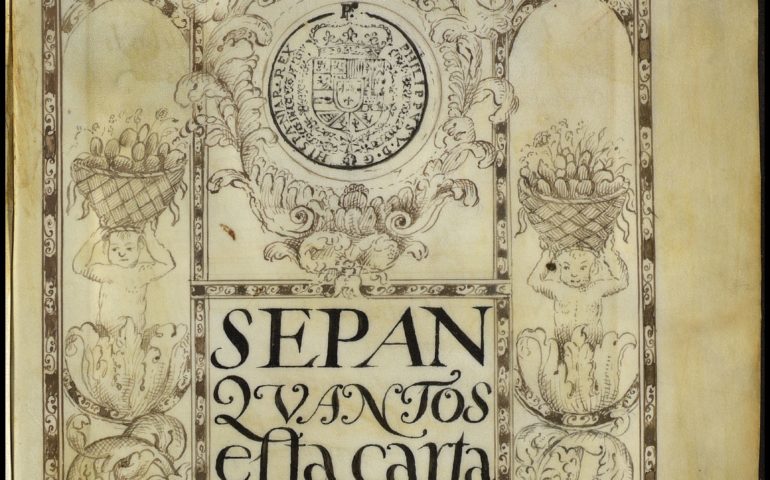 PHILIPPVS·V·D·G· HISPANIAR·REX
SEPAN
QVANTOS
eſta carta